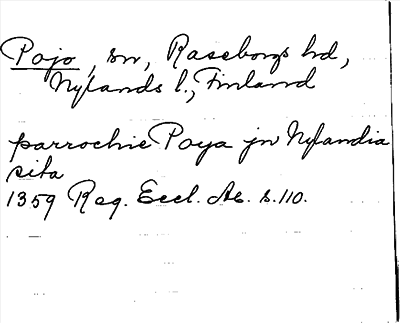 Pojo, sn, Raseborgs hd,
Nylands l., Finland
parrochie Poya jn Nylandia
sita
1359 Reg. Eccl. Ab. s. 110.